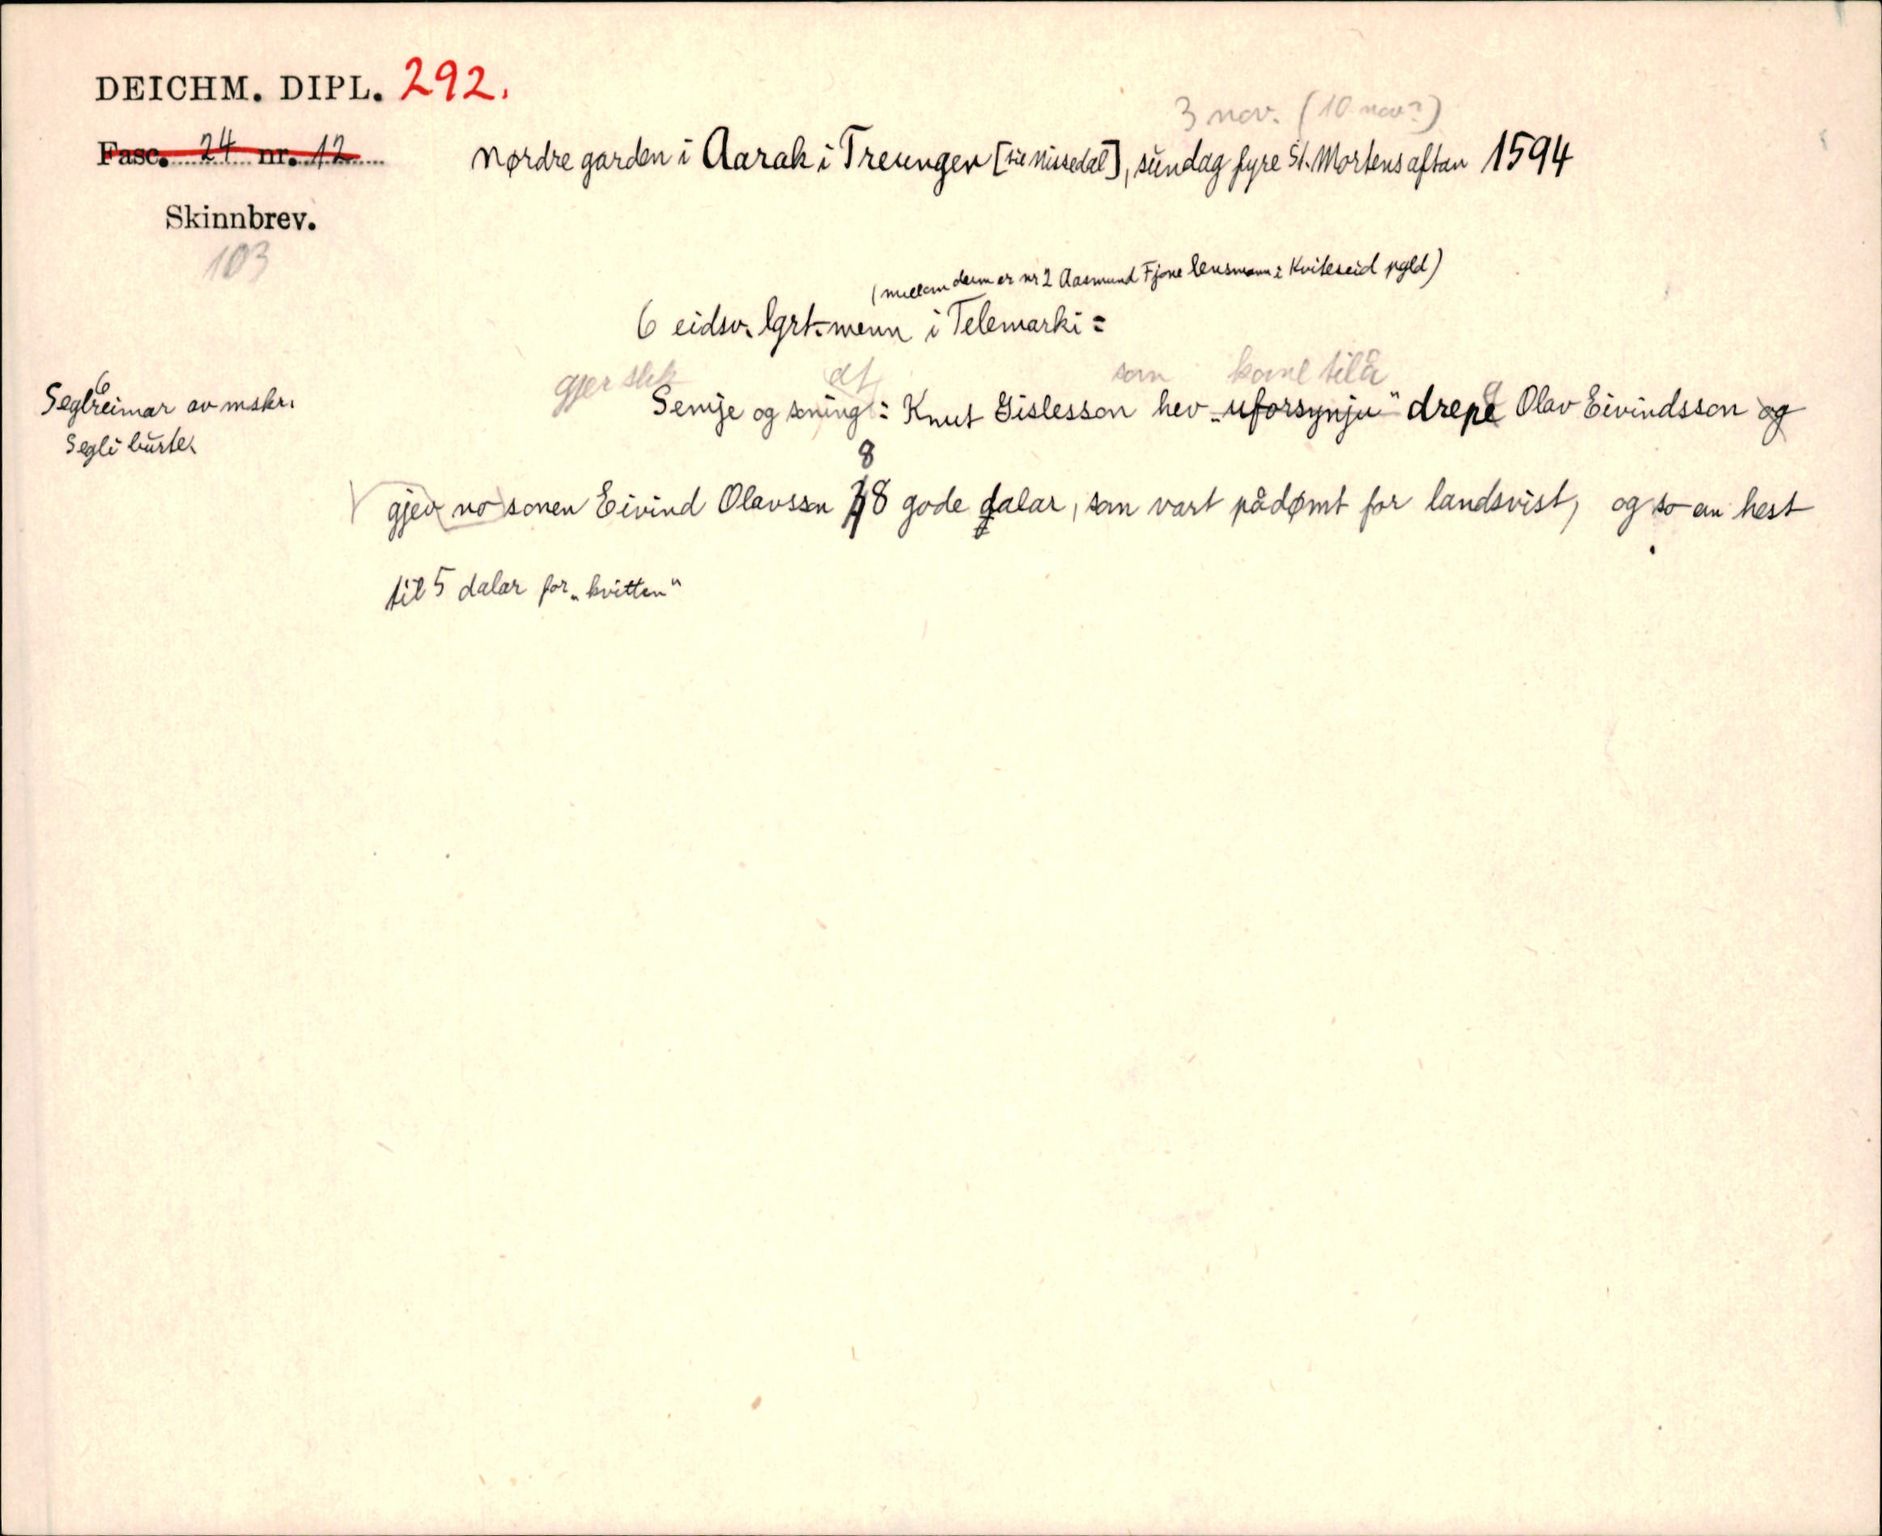 DEICHM. DIPL. 292.
3 nov. (10 nov?)
Fasc. 24 nr. 12
Nørdre garden i Aarak i Treungen [ Nissedal], sundag fyre St. Mortens aftan 1594
Skinnbrev.
103
(millom deim er nr 2 Aasmund Fjone lensmann i Kviteseid pgld)
6 eidsv. lgrt.menn i Telemarki:
gjer slik at som kome til å
6
Seglreimar av mskr.
Semje og soning: Knut Gislesson hev „uforsynju" drepe Olav Eivindsson og
Segli burte.
8
gjev no sonen Eivind Olavsson 8 gode dalar, som vart pådømt for landsvist, og so en hest
til 5 dalar for „kvitten"